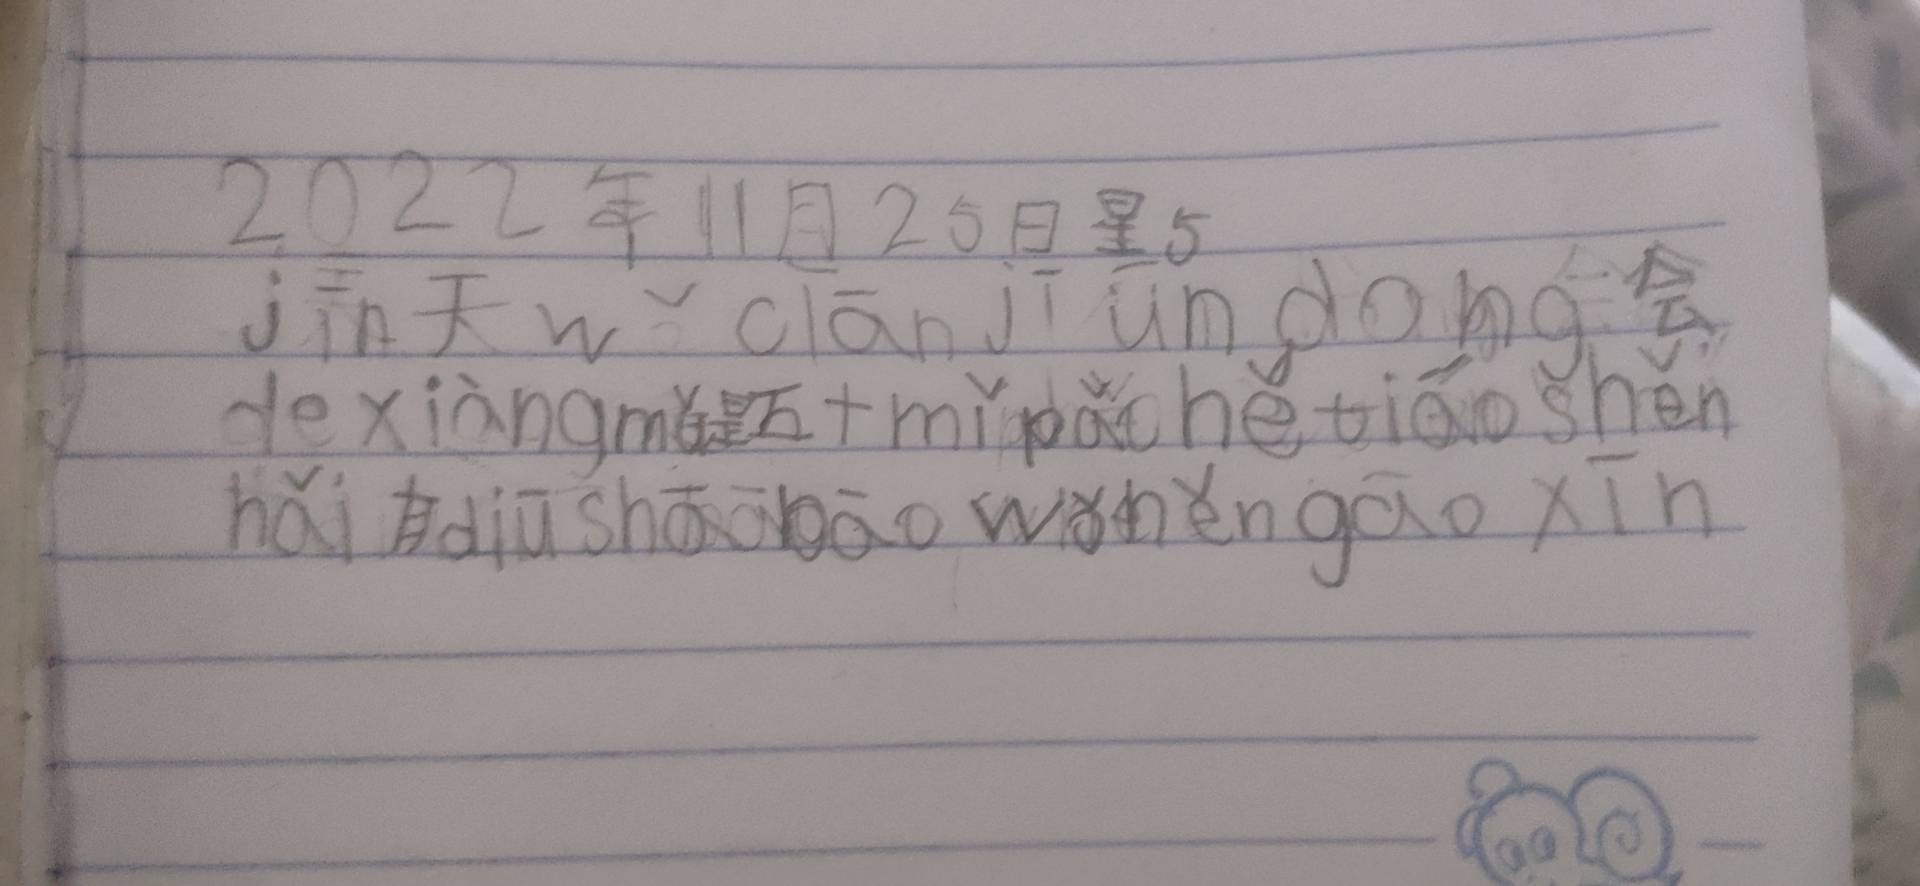 2022年11月25日星5
jīn天wǒ cānjī ūndong会
dexiàngmǔ是五十mǐpǎo hětiáoshěn
hǎi有diūshāobāo wǒhěngāoxīn